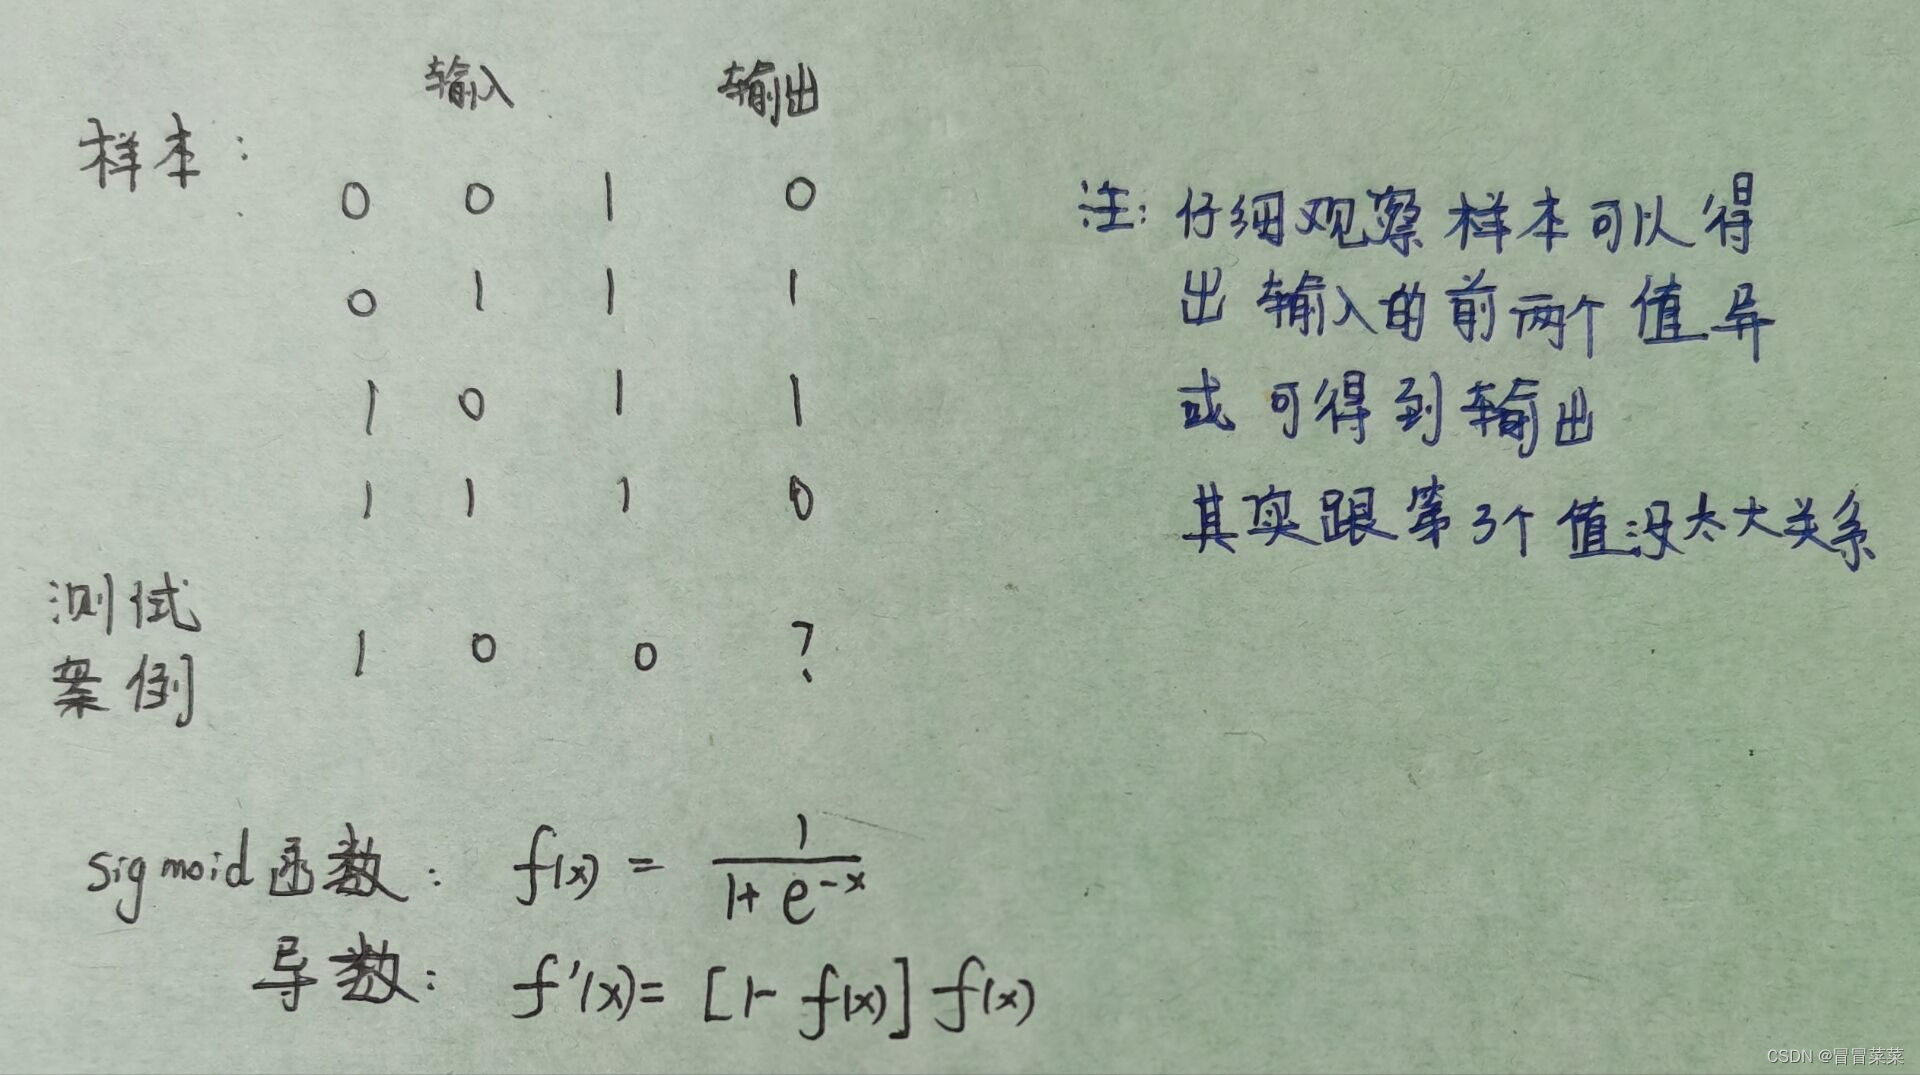 输入 输出
样本：
0 0 1 0
0 1 1 1
1 0 1 1
1 1 1 0
测试
案例
1 0 0 ?
注：仔细观察样本可以得
出输入的前两个值异
或可得到输出
其实跟第3个值没太大关系
sigmoid函数： f(x) = 1/(1+e^-x)
导数： f'(x)= [1-f(x)]f(x)
CSDN @冒冒菜菜